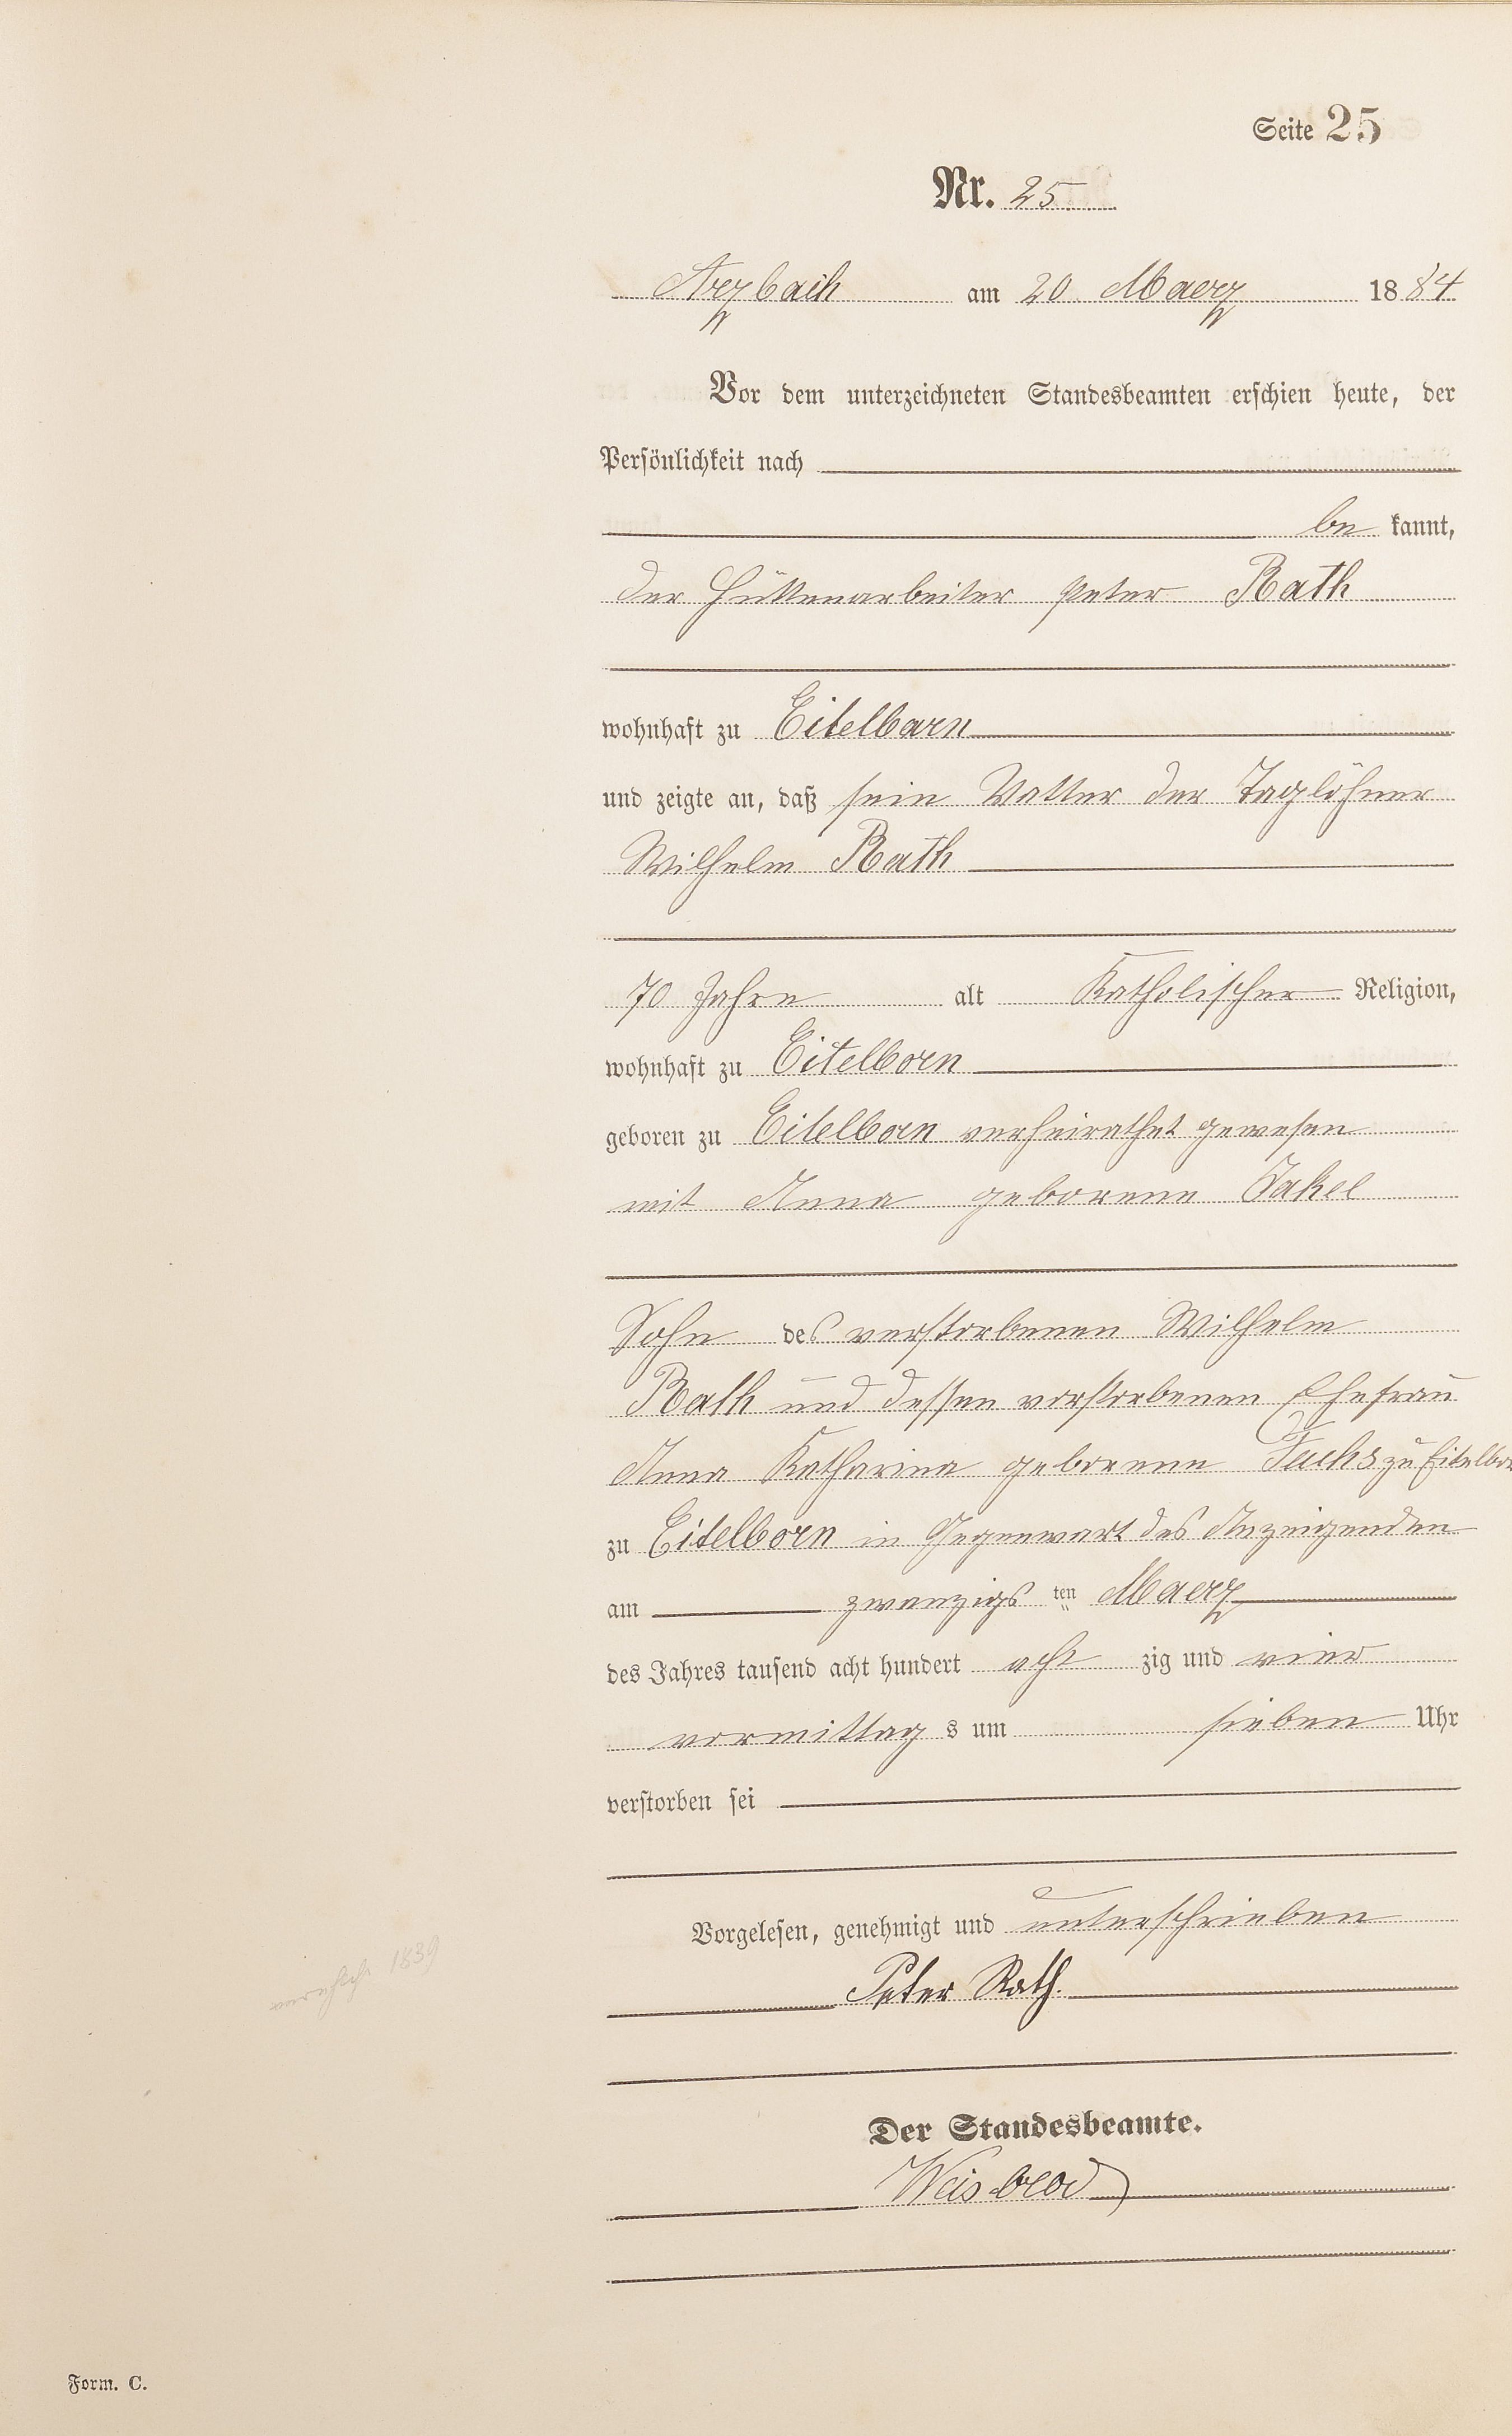 Seite 25
Nr. 25
Arzbach am 20 Maerz 1884
Vor dem unterzeichneten Standesbeamten erschien heute, der
Persönlichkeit nach
be kannt,
der Hüttenarbeiter Peter Rath
wohnhaft zu Eitelborn
und zeigte an, daß sein Vatter der Taglöhner
Wilhelm Rath
70 Jahre alt Katholischer Religion,
wohnhaft zu Eitelborn
geboren zu Eitelborn verheirathet gewesen
mit Anna geborene Jakel
Sohn des verstorbenen Wilhelm
Rath und dessen verstorbenen Ehefrau
Anna Katharina geborenen Fuchs zu Eitelborn
zu Eitelborn in Gegenwart des Anzeigenden
am zwanzigs ten Maerz
des Jahres tausend acht hundert acht zig und vier
vormittag s um sieben Uhr
verstorben sei
Vorgelesen, genehmigt und unterschrieben
Peter Rath.
1839
Der Standesbeamte.
Weisbrod
Form. C.